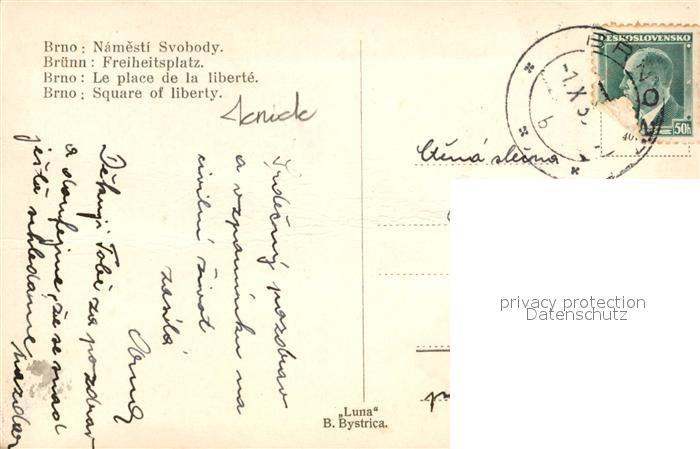 Brno: Náměstí Svobody.
Brünn: Freiheitsplatz.
Brno: Le place de la liberté.
Brno: Square of liberty.
ČESKOSLOVENSKO
50h
-1.X.3
b
Ctěná slečna
Srdečný pozdrav
a vzpomínku na
civilní život
zasílá
Děkuji Tobě za pozdrav
a doufejme, že se snad
ještě shledáme
nazdar
„Luna“
B. Bystrica.
privacy protection
Datenschutz